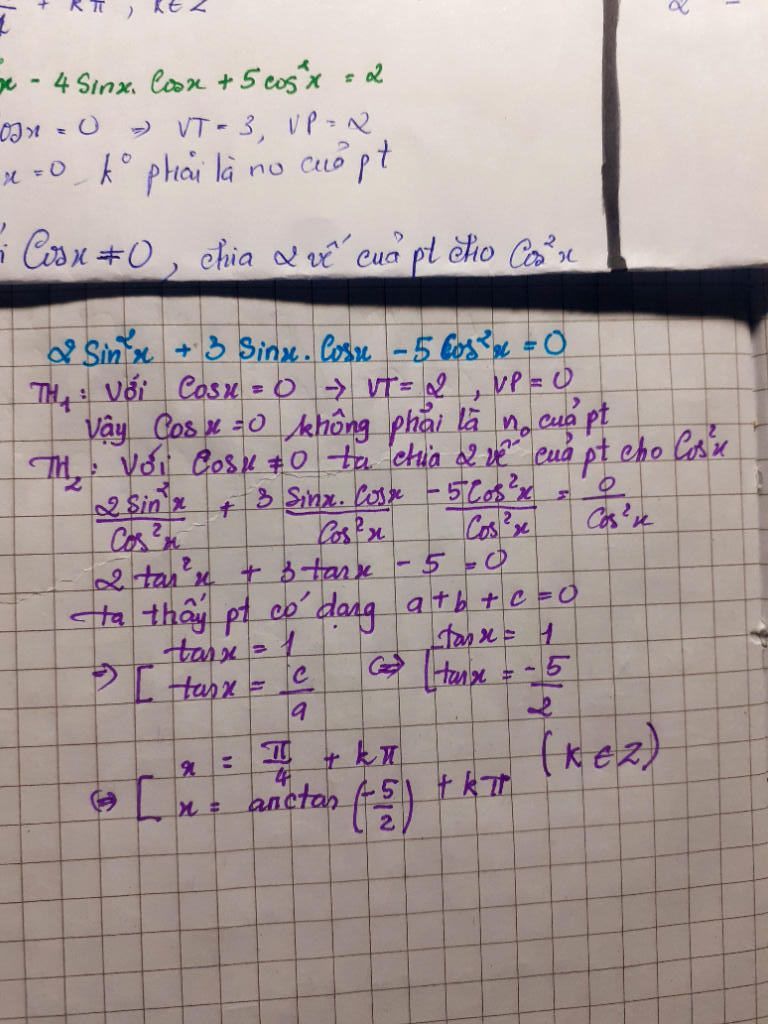 + kπ, k∈Z
x - 4 Sinx. Cosx + 5 cos²x = 2
cosx = 0 => VT = 3, VP = 2
x = 0 k° phải là no cuả pt
Cosx ≠ 0, chia 2 vế cuả pt cho Cos²x
2 Sin²x + 3 Sinx. Cosx - 5 Cos²x = 0
TH₁: Với Cosx = 0 → VT = 2, VP = 0
Vậy Cosx = 0 không phải là no cuả pt
TH₂: Với Cosx ≠ 0 ta chia 2 vế cuả pt cho Cos²x
2 Sin²x/Cos²x + 3 Sinx. Cosx/Cos²x - 5 Cos²x/Cos²x = 0/Cos²x
2 tan²x + 3 tanx - 5 = 0
ta thấy pt có dạng a + b + c = 0
=> [ tanx = 1 <=> [ tanx = 1
tanx = c/a tanx = -5/2
<=> [ x = π/4 + kπ (k ∈ Z)
x = arctan (-5/2) + kπ